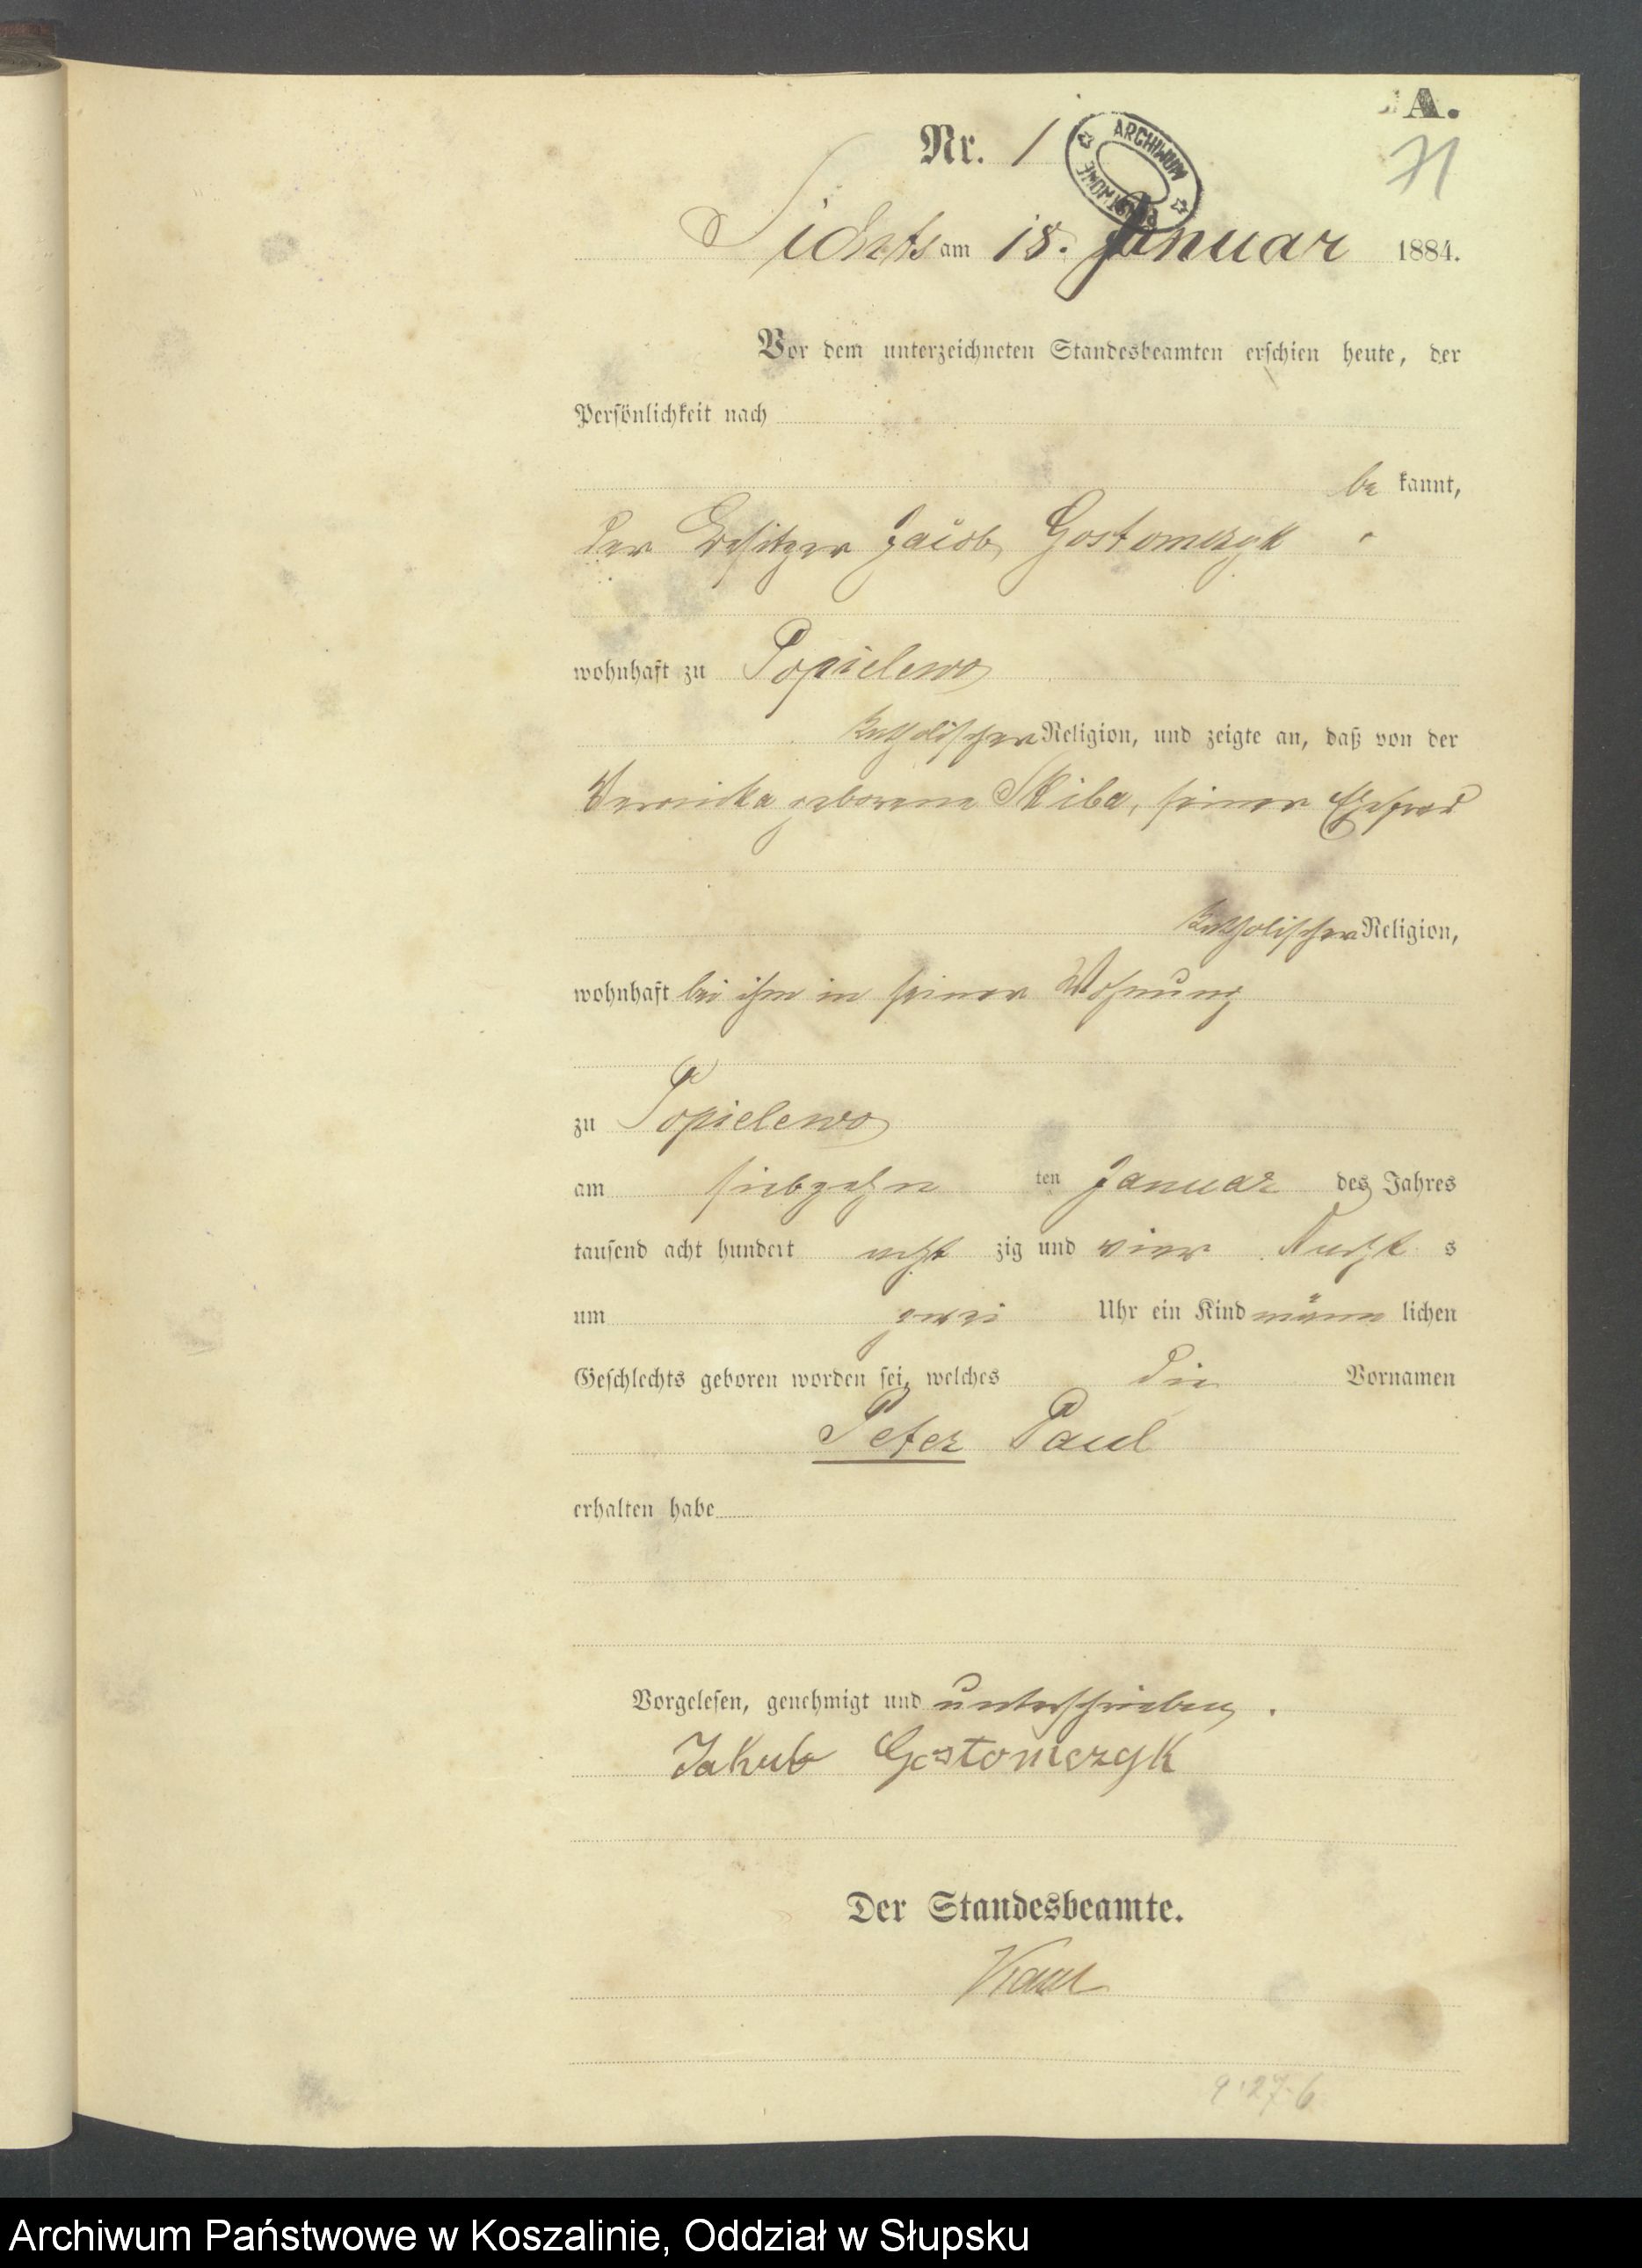 A.
Nr. 1
71
ARCHIWUM
PAŃSTWOWE
am 18. Januar 1884.
Vor dem unterzeichneten Standesbeamten erschien heute, der
Persönlichkeit nach
be kannt,
der Besitzer Jacob Gostomczyk
wohnhaft zu Popielewo
katholischer Religion, und zeigte an, daß von der
Veronika geborene Skiba, seiner Ehefrau
katholischer Religion,
wohnhaft bei ihm in seiner Wohnung
zu Popielewo
am siebzehn ten Januar des Jahres
tausend acht hundert acht zig und vier Nacht s
um zwei Uhr ein Kind männ lichen
Geschlechts geboren worden sei, welches die Vornamen
Peter Paul
erhalten habe
Vorgelesen, genehmigt und unterschrieben.
Jakub Gostomczyk
Der Standesbeamte.
9.27.6
Archiwum Państwowe w Koszalinie, Oddział w Słupsku